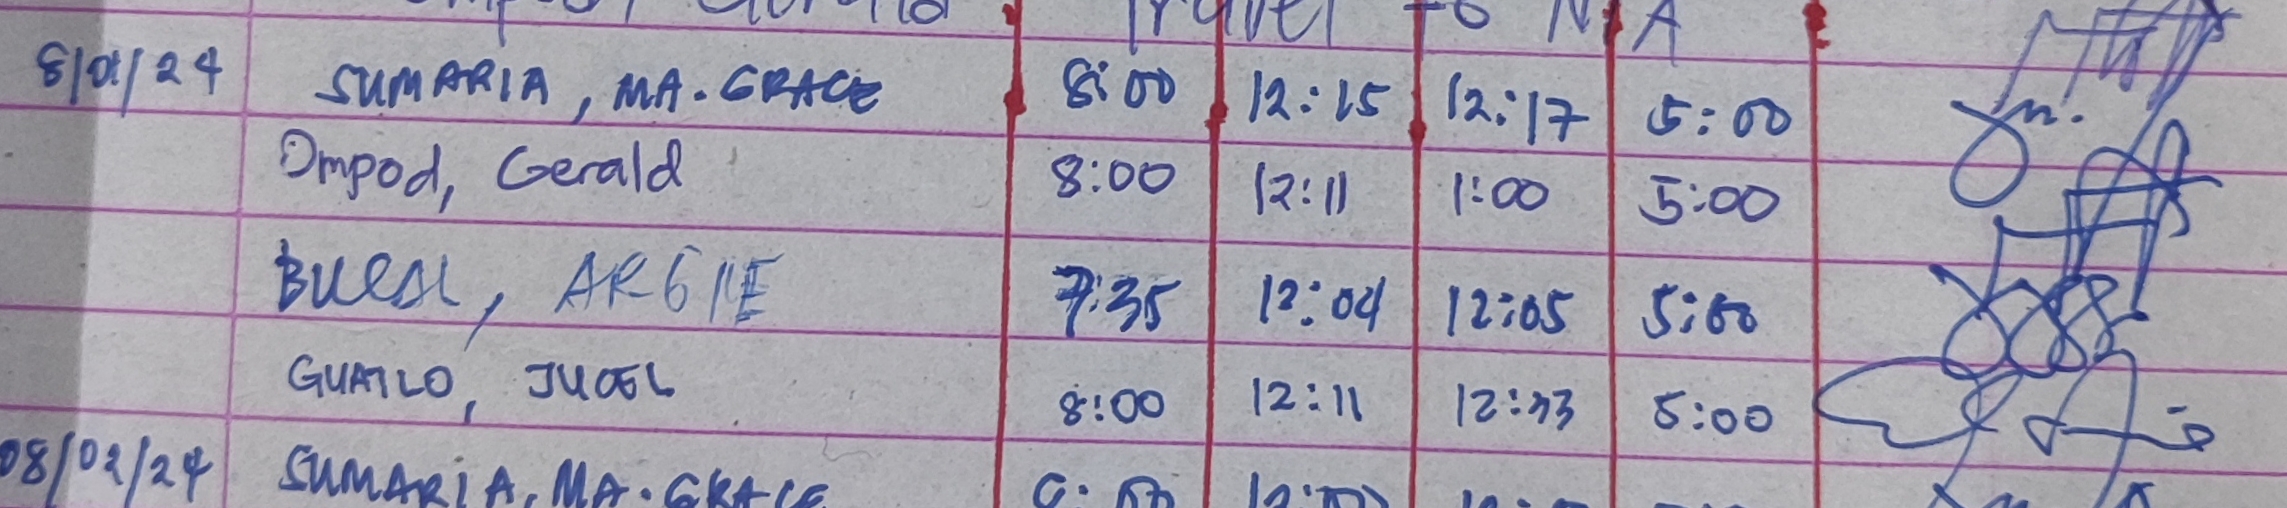 Travel to N/A
8/01/24 SUMARIA, MA. GRACE 8:00 12:15 12:17 5:00
Ompod, Gerald 8:00 12:11 1:00 5:00
BUCAL, ARGIE 7:35 12:04 12:05 5:00
GUATLO, JUOEL 8:00 12:11 12:33 5:00
08/02/24 SUMARIA, MA. GRACE